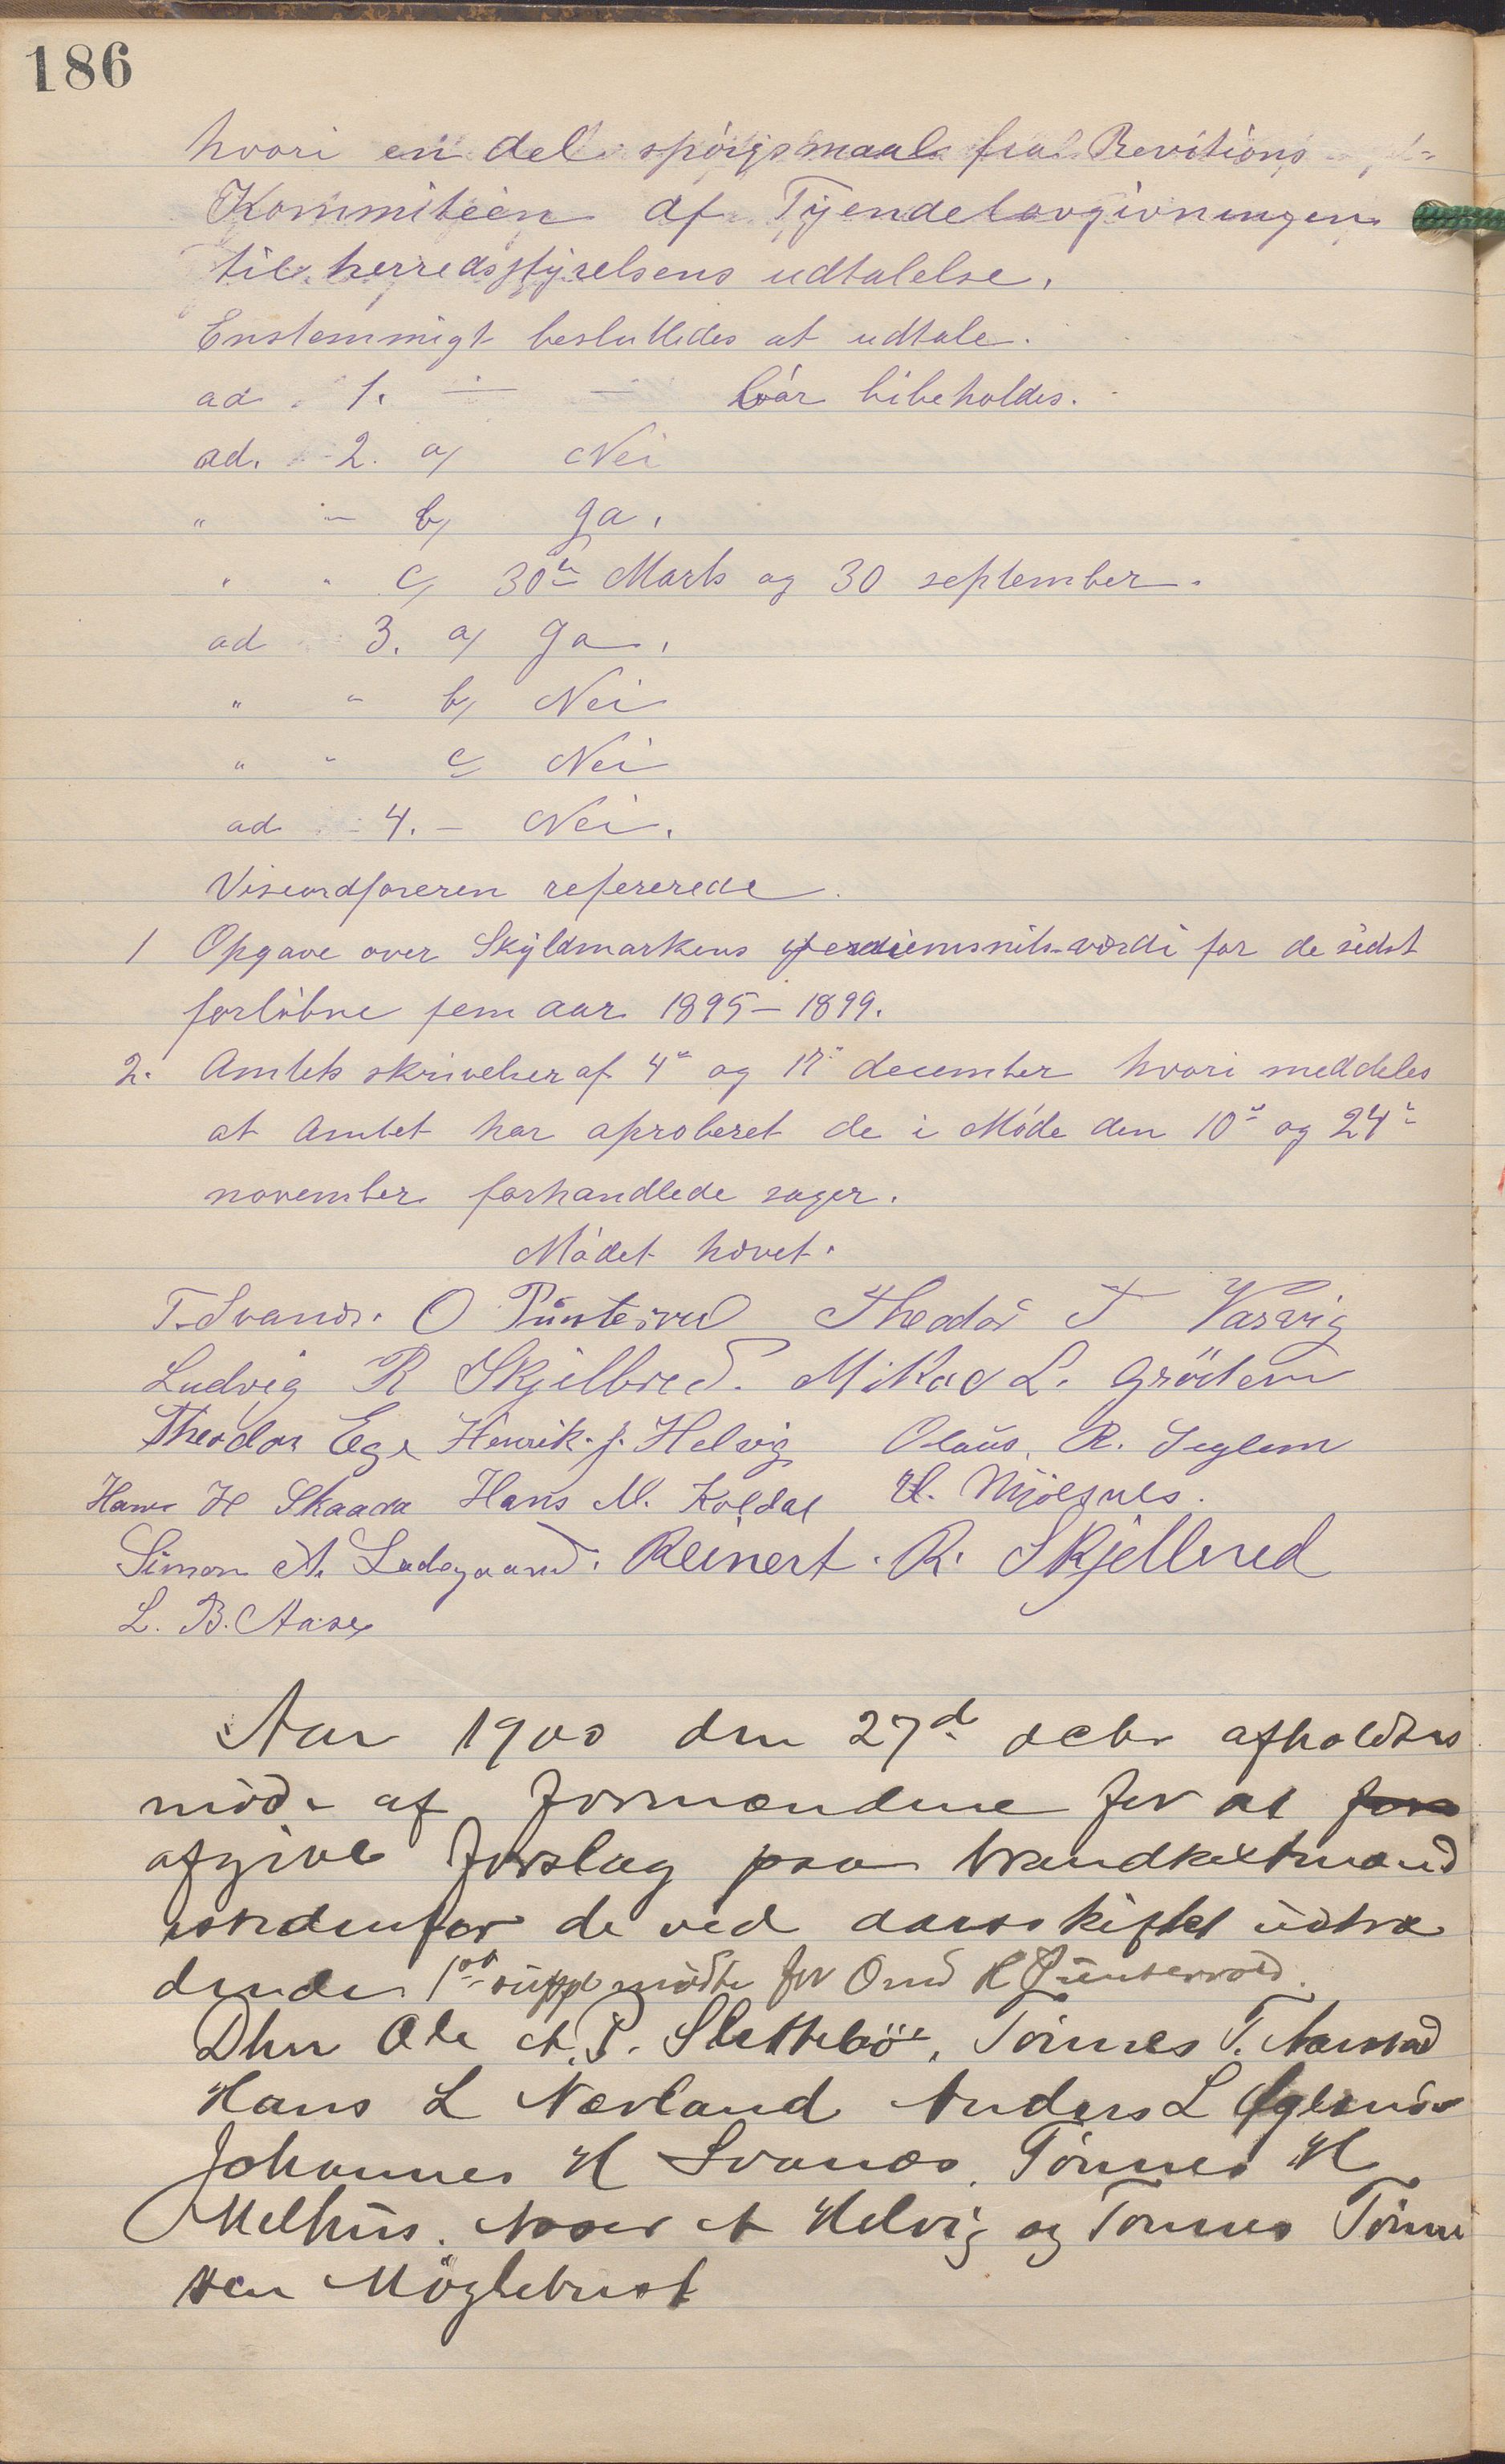 186
hvori en del spörgsmaal fra Revitions
Kommiteen af Tyendelovgivningen
til herredsstyrelsens udtalelse.
Enstemmigt besluttedes at udtale.
ad 1. — — bör bibeholdes.
ad. 2. a/ Nei
" — b/ Ja.
" " c/ 30te Marts og 30 september.
ad 3. a/ Ja.
" " b/ Nei
" " c Nei
ad 4. — Nei.
Viseordføreren refererede.
1 Opgave over Skyldmarkens værdi for de sidst
forløbne fem aar 1895–1899.
2. Amtets skrivelser af 4de og december hvori meddeles
at Amtet har aproberet de i Möde den 10de og 24de
november forhandlede sager.
Mødet hævet.
T. Svanes. O Puntervol Theodor T Varvig
Ludvig R Skjelbred. Mikael L. Grödem
Theodor Ege Henrik. J. Helvig Olaus. R. Seglem
Hans H Skaara Hans M. Koldal H. Mjølsnes.
Simon A. Ladegaard. Reinert. R. Skjelbred
L. B. Aase
Aar 1900 den 27de decbr afholdtes
möde af formændene for at for
afgive forslag paa brandtakstmænd
istedenfor de ved aarsskiftet udtræ
dende 1ste suppl mödte for Omd R Puntervold.
Dhrr Ole A. P. Slettebö, Tönnes T. Aarstad
Hans L Nærland Anders L
Johannes H Svanes, Tönnes H
Melhus. A Helvig og Tönnes Tönne
sen Möglebust